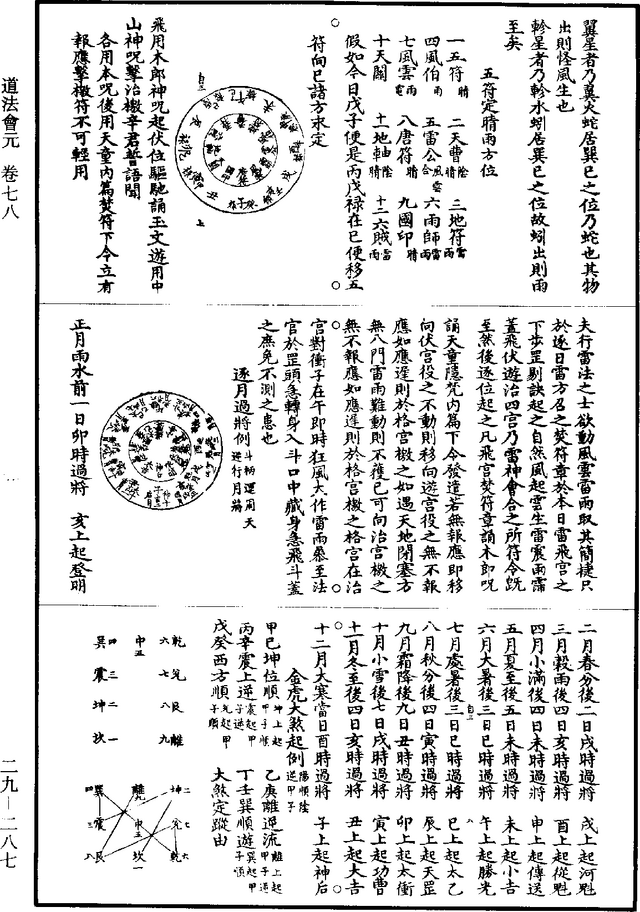 道法會元　卷七八
二九—二八七
翼星者乃翼火蛇居巽巳之位乃蛇也其物
出則怪風生也
軫星者乃軫水蚓居巽巳之位故蚓出則雨
至矣
五符定晴雨方位
一五符晴　二天曹陰　三地符雷雨
四風伯雨　五雷公風雲合　六雨師雷雨
七風雲雷電　八唐符晴　九國印晴
十天關　十一地軸陰晴　十二六賊雷雨
假如今日戊子便是丙戊祿在巳便移五
符向巳諸方求定
飛用木郎神呪起伏位驅馳誦玉文遊用中
山神呪擊治檄辛君誓語聞
各用本呪後用天童內篇焚符下令立有
報應擊檄符不可輕用
夫行雷法之士欲動風雲雷雨取其簡捷只
於逐日雷方召之焚符章於本日雷飛宮之
下步罡剔訣起之自然風起雲生雷震雨霈
蓋飛伏遊治四宮乃雷神會合之所符令旣
至然後逐位起之凡飛宮焚符章誦木郎呪
誦天童隱梵內篇下令發遣若無報應即移
向伏宮役之不動則移向遊宮役之無不報
應如應遲則於格宮檄之如遇天地閉塞方
無八門雷雨難動則不獲已可向治宮檄之
無不報應如應遲則於格宮檄之格宮在治
宮對衝子在午即時狂風大作雷雨暴至法
官於罡頭急轉身入斗口中藏身急飛斗蓋
之庶免不測之患也
逐月過將例斗柄運周天逆行月將
正月雨水前一日卯時過將　亥上起登明
二月春分後二日戌時過將　戌上起河魁
三月穀雨後四日亥時過將　酉上起從魁
四月小滿後四日未時過將　申上起傳送
五月夏至後五日未時過將　未上起小吉
六月大暑後三日巳時過將　午上起勝光
七月處暑後三日巳時過將　巳上起太乙
八月秋分後四日寅時過將　辰上起天罡
九月霜降後九日丑時過將　卯上起太衝
十月小雪後七日戌時過將　寅上起功曹
十一月冬至後四日亥時過將　丑上起大吉
十二月大寒當日酉時過將　子上起神后
金虎大煞起例陽順陰逆甲子
甲巳坤位順坤上起甲子順　乙庚離逆流離上起甲子逆
丙辛震上逆震起甲子逆　丁壬巽順遊巽起甲子順
戊癸西方順兌起甲子順　大煞定蹤由
巽四　中五　乾六
震三　兌七
坤二　艮八
坎一　離九
巽四　離九　坤二
震三　中五　兌七
艮八　坎一　乾六